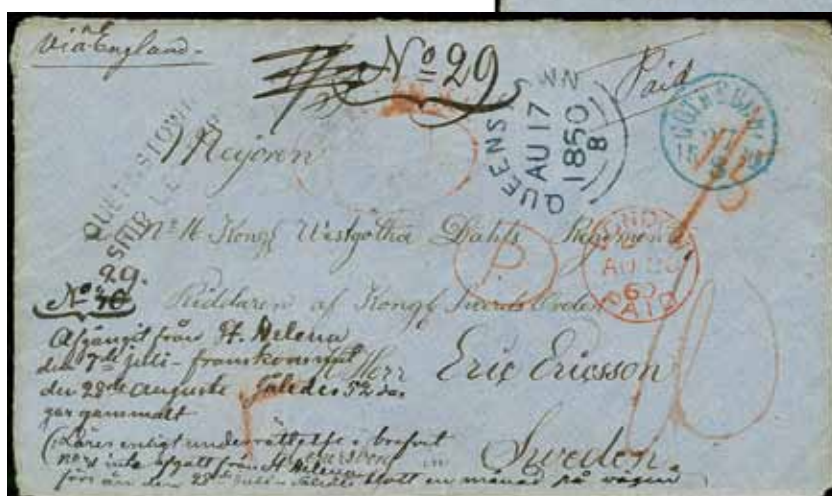 via England
No 29
Paid
QUEENSTOWN
AU 17
1850
8
QUEENSTOWN
SHIP LE
Majoren
Kongl Westgötha Dahls Regemente
P
LONDON
AU 20
60
PAID
29.
No 30
Riddaren af Kongl Swerds Orden
Herr Eric Ericsson
Afgångit från St. Helena
den 7de juli - framkommit
den 28de Augusti Således 52 da-
gar gammalt
in Sweden.
(Läres enligt underrättelse i brefvet
no 31 inte afgått från St Helena
förr än den 28de juli - således blott en månad på vägen